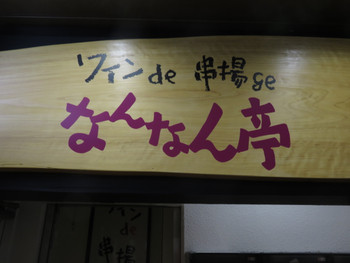 ワイン de 串揚 ge
なんなん亭
ワイン
de
串揚